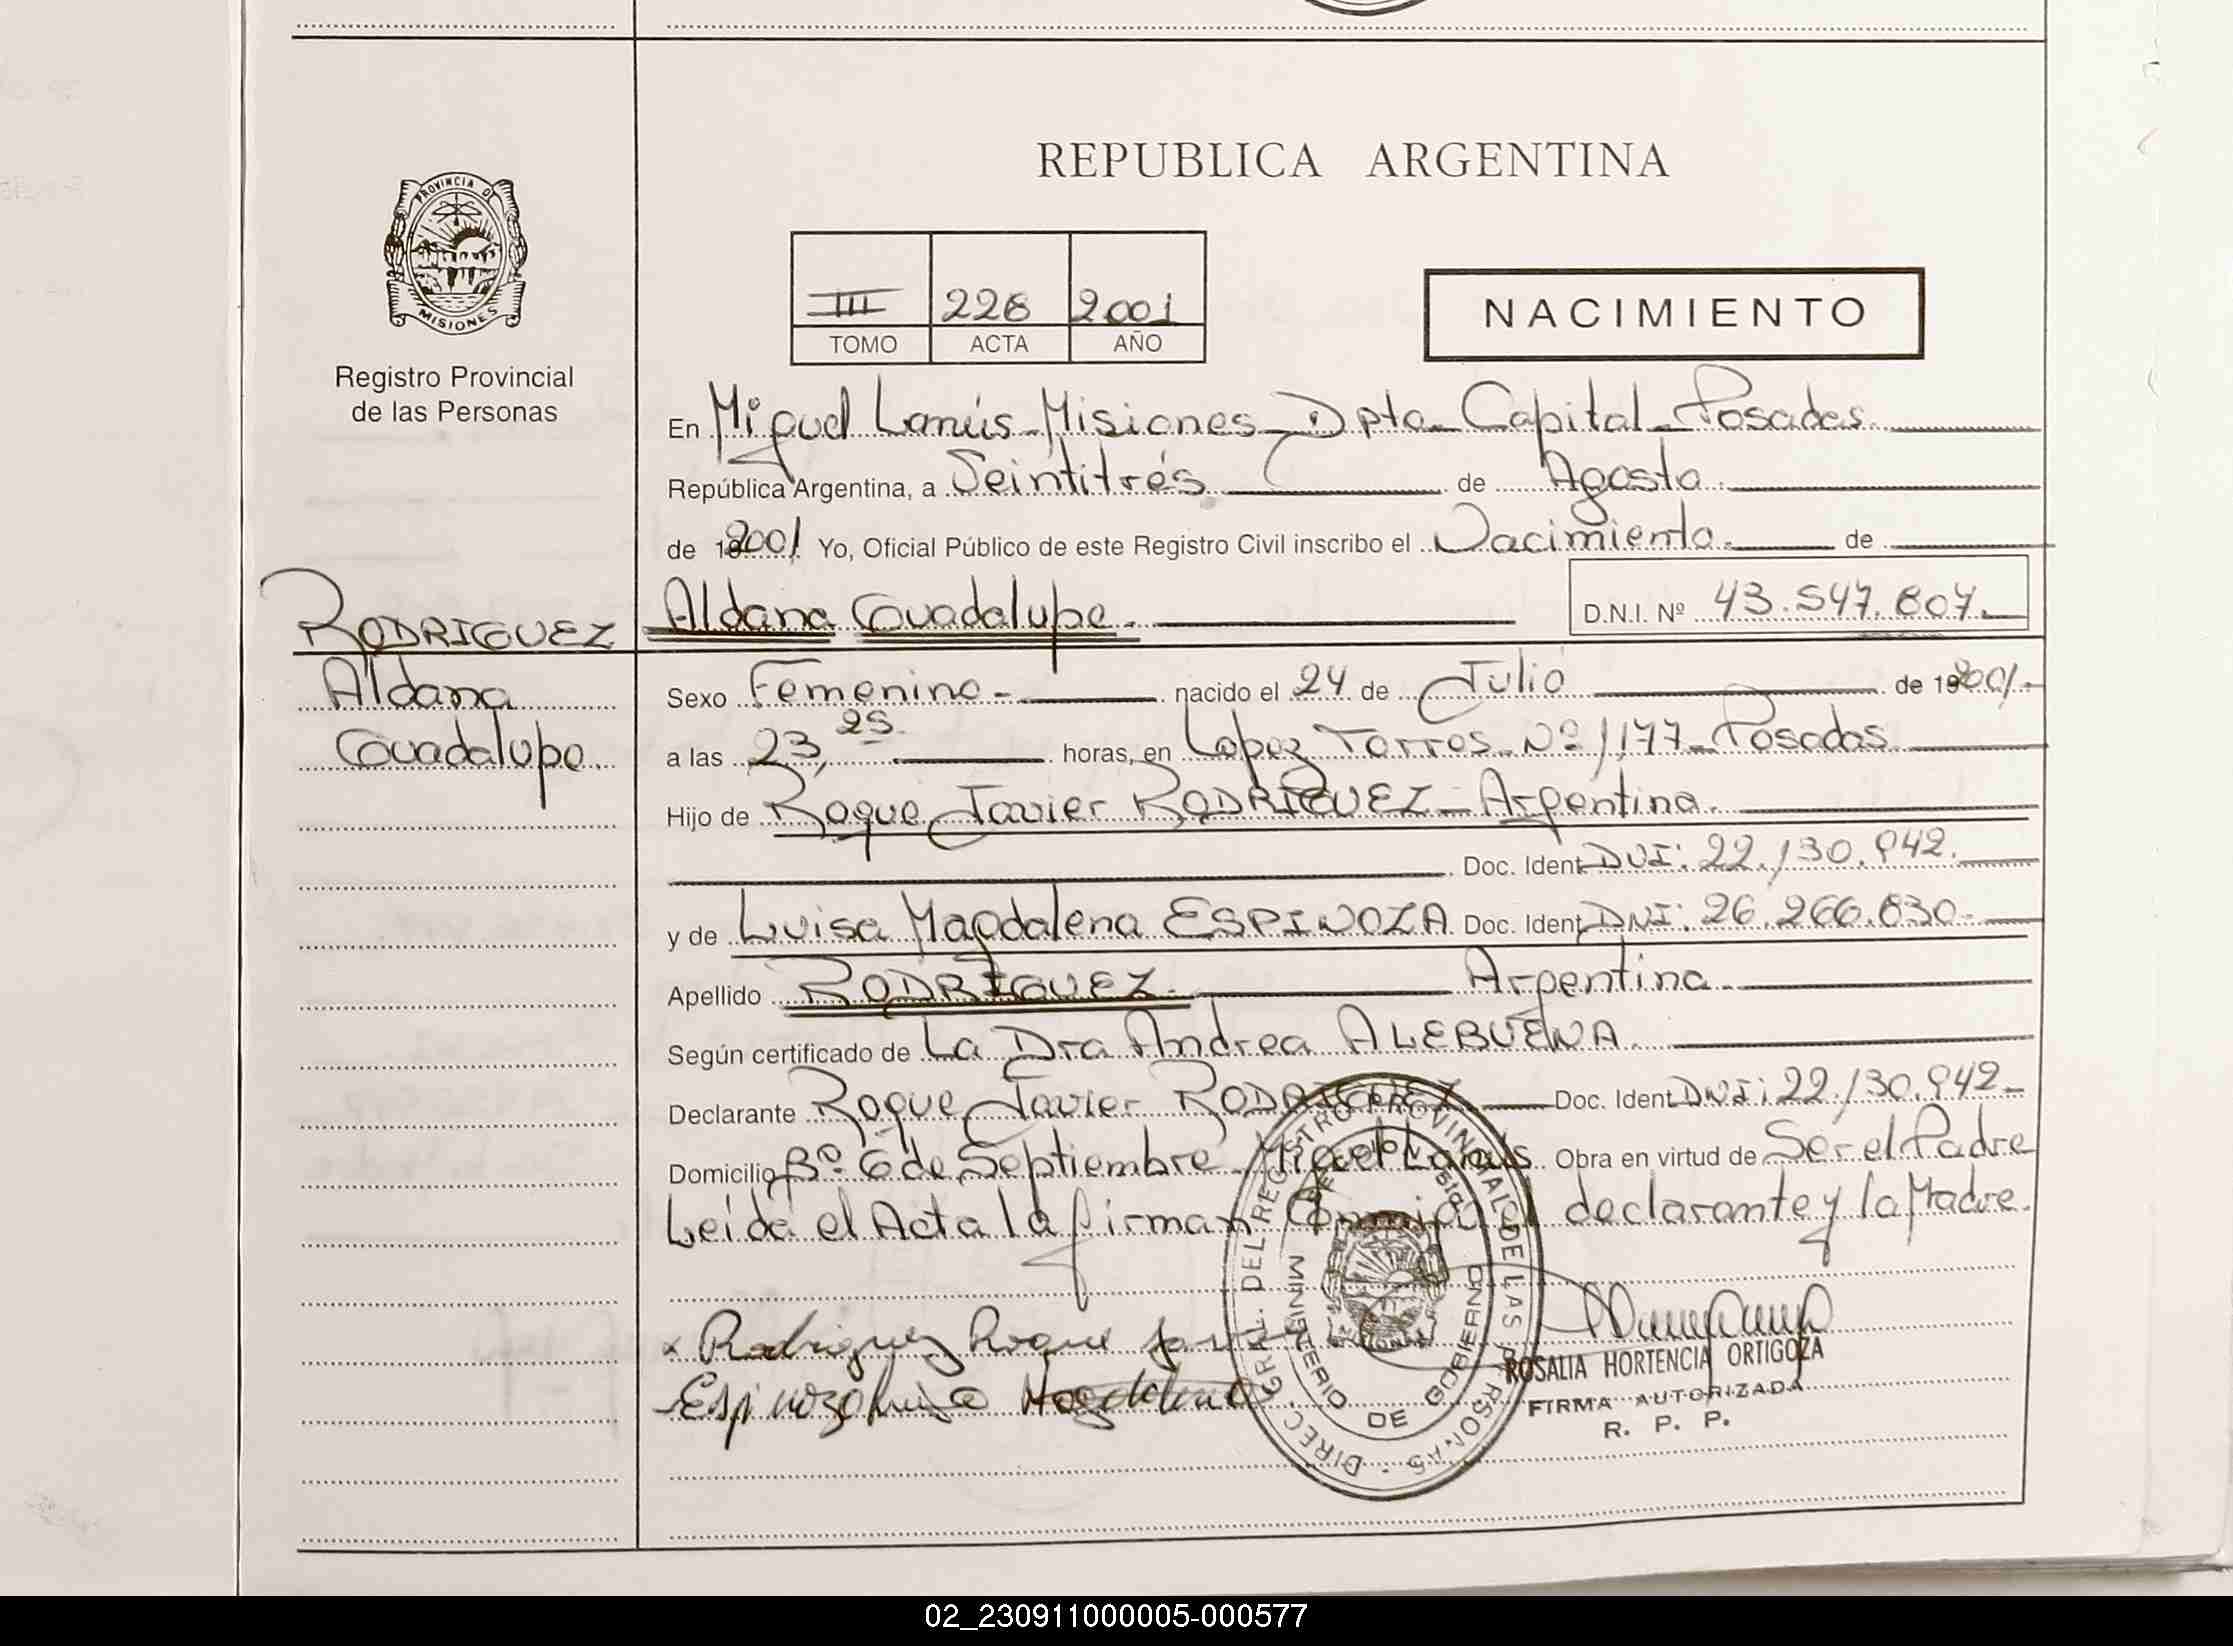 REPUBLICA ARGENTINA
PROVINCIA D
MISIONES
Registro Provincial
de las Personas
III 228 2001
TOMO ACTA AÑO
NACIMIENTO
En Miguel Lanús - Misiones - Dpto - Capital - Posadas.
República Argentina, a Veintitrés de Agosto.
de 2001 Yo, Oficial Público de este Registro Civil inscribo el Nacimiento. de
RODRIGUEZ
Aldana
Guadalupe.
Aldana Guadalupe. D.N.I. Nº 43.547.807.
Sexo Femenino - nacido el 24 de Julio de 2001.-
a las 23,25 horas, en Lopez Torres Nº 1177 - Posadas
Hijo de Roque Javier RODRIGUEZ - Argentina.
Doc. Ident. DNI: 22.130.942.
y de Luisa Magdalena ESPINOZA. Doc. Ident. DNI: 26.266.830.-
Apellido RODRIGUEZ. Argentina.
Según certificado de La Dra Andrea ALEBUENA.
Declarante Roque Javier RODRIGUEZ Doc. Ident. DNI: 22.130.942.-
Domicilio Bº. 6 de Septiembre. Miguel Lanús. Obra en virtud de Ser el Padre
Leida el Acta la firman Conmigo el declarante y la Madre.
x Rodriguez Roque Javier
Espinoza Luisa Magdalena
DIREC. GRAL. DEL REGISTRO PROVINCIAL DE LAS PERSONAS
MINISTERIO DE GOBIERNO
ROSALIA HORTENCIA ORTIGOZA
FIRMA AUTORIZADA
R. P. P.
02_230911000005-000577